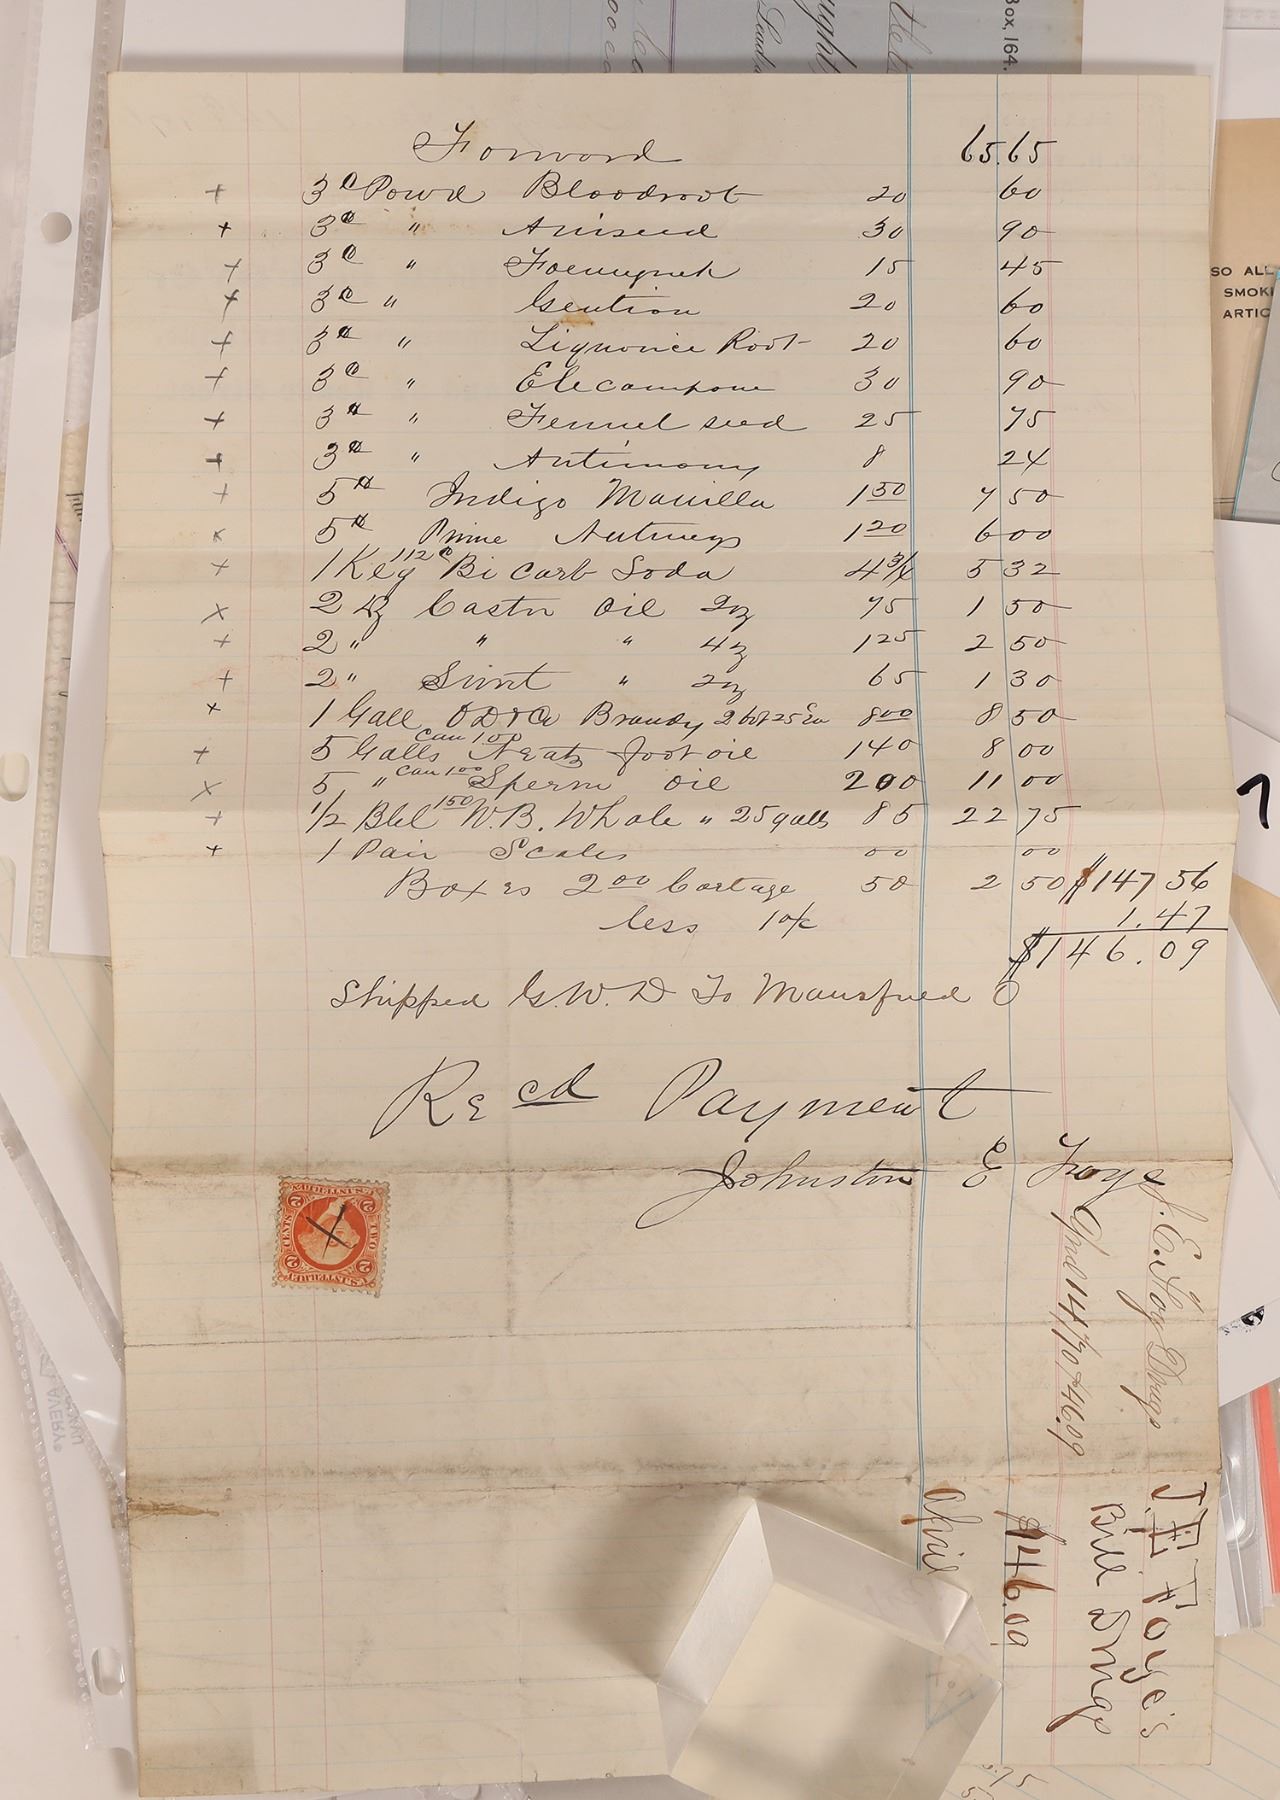 Forword 65.65
+ 3 lb Powd Bloodroot 20 60
+ 3 lb " Aniseed 30 90
+ 3 lb " Foenugrek 15 45
+ 3 lb " Gention 20 60
+ 3 lb " Liquorice Root 20 60
+ 3 lb " Elecampane 30 90
+ 3 lb " Fennel seed 25 75
+ 3 lb " Antimony 8 24
+ 5 lb Indigo Manilla 1 50 7 50
x 5 lb Prime Nutmegs 1 20 6 00
+ 1 Keg 112 lb Bi Carb Soda 4 3/4 5 32
x 2 Dz Castor Oil 2oz 75 1 50
+ 2 " " " 4oz 1 25 2 50
+ 2 " Sweet " 2oz 65 1 30
+ 1 Gall O D & Co Brandy 2 bot 25 8 00 8 50
+ 5 Galls Can 1 00 Neats foot oil 1 40 8 00
x 5 " Can 1 00 Sperm oil 2 00 11 00
+ 1/2 Bbl 1 50 W.B. Whale " 25 galls 85 22 75
+ 1 Pair Scales 00 00
Boxes 2 00 Cartage 50 2 50 $147 56
less 1 o/c 1.47
$146.09
Shipped G.W.D To Mansfield O
Recd Payment
Johnston E Foye
U.S. INTER. REV.
2 2
TWO CENTS
2 2
U.S. INTER. REV.
J. E. Foy Drugs
146.09
J. E. Foye's
Bill Drugs
$146.09
April
Box, 164.
ught
SO ALL
SMOKI
ARTIC
AVERY